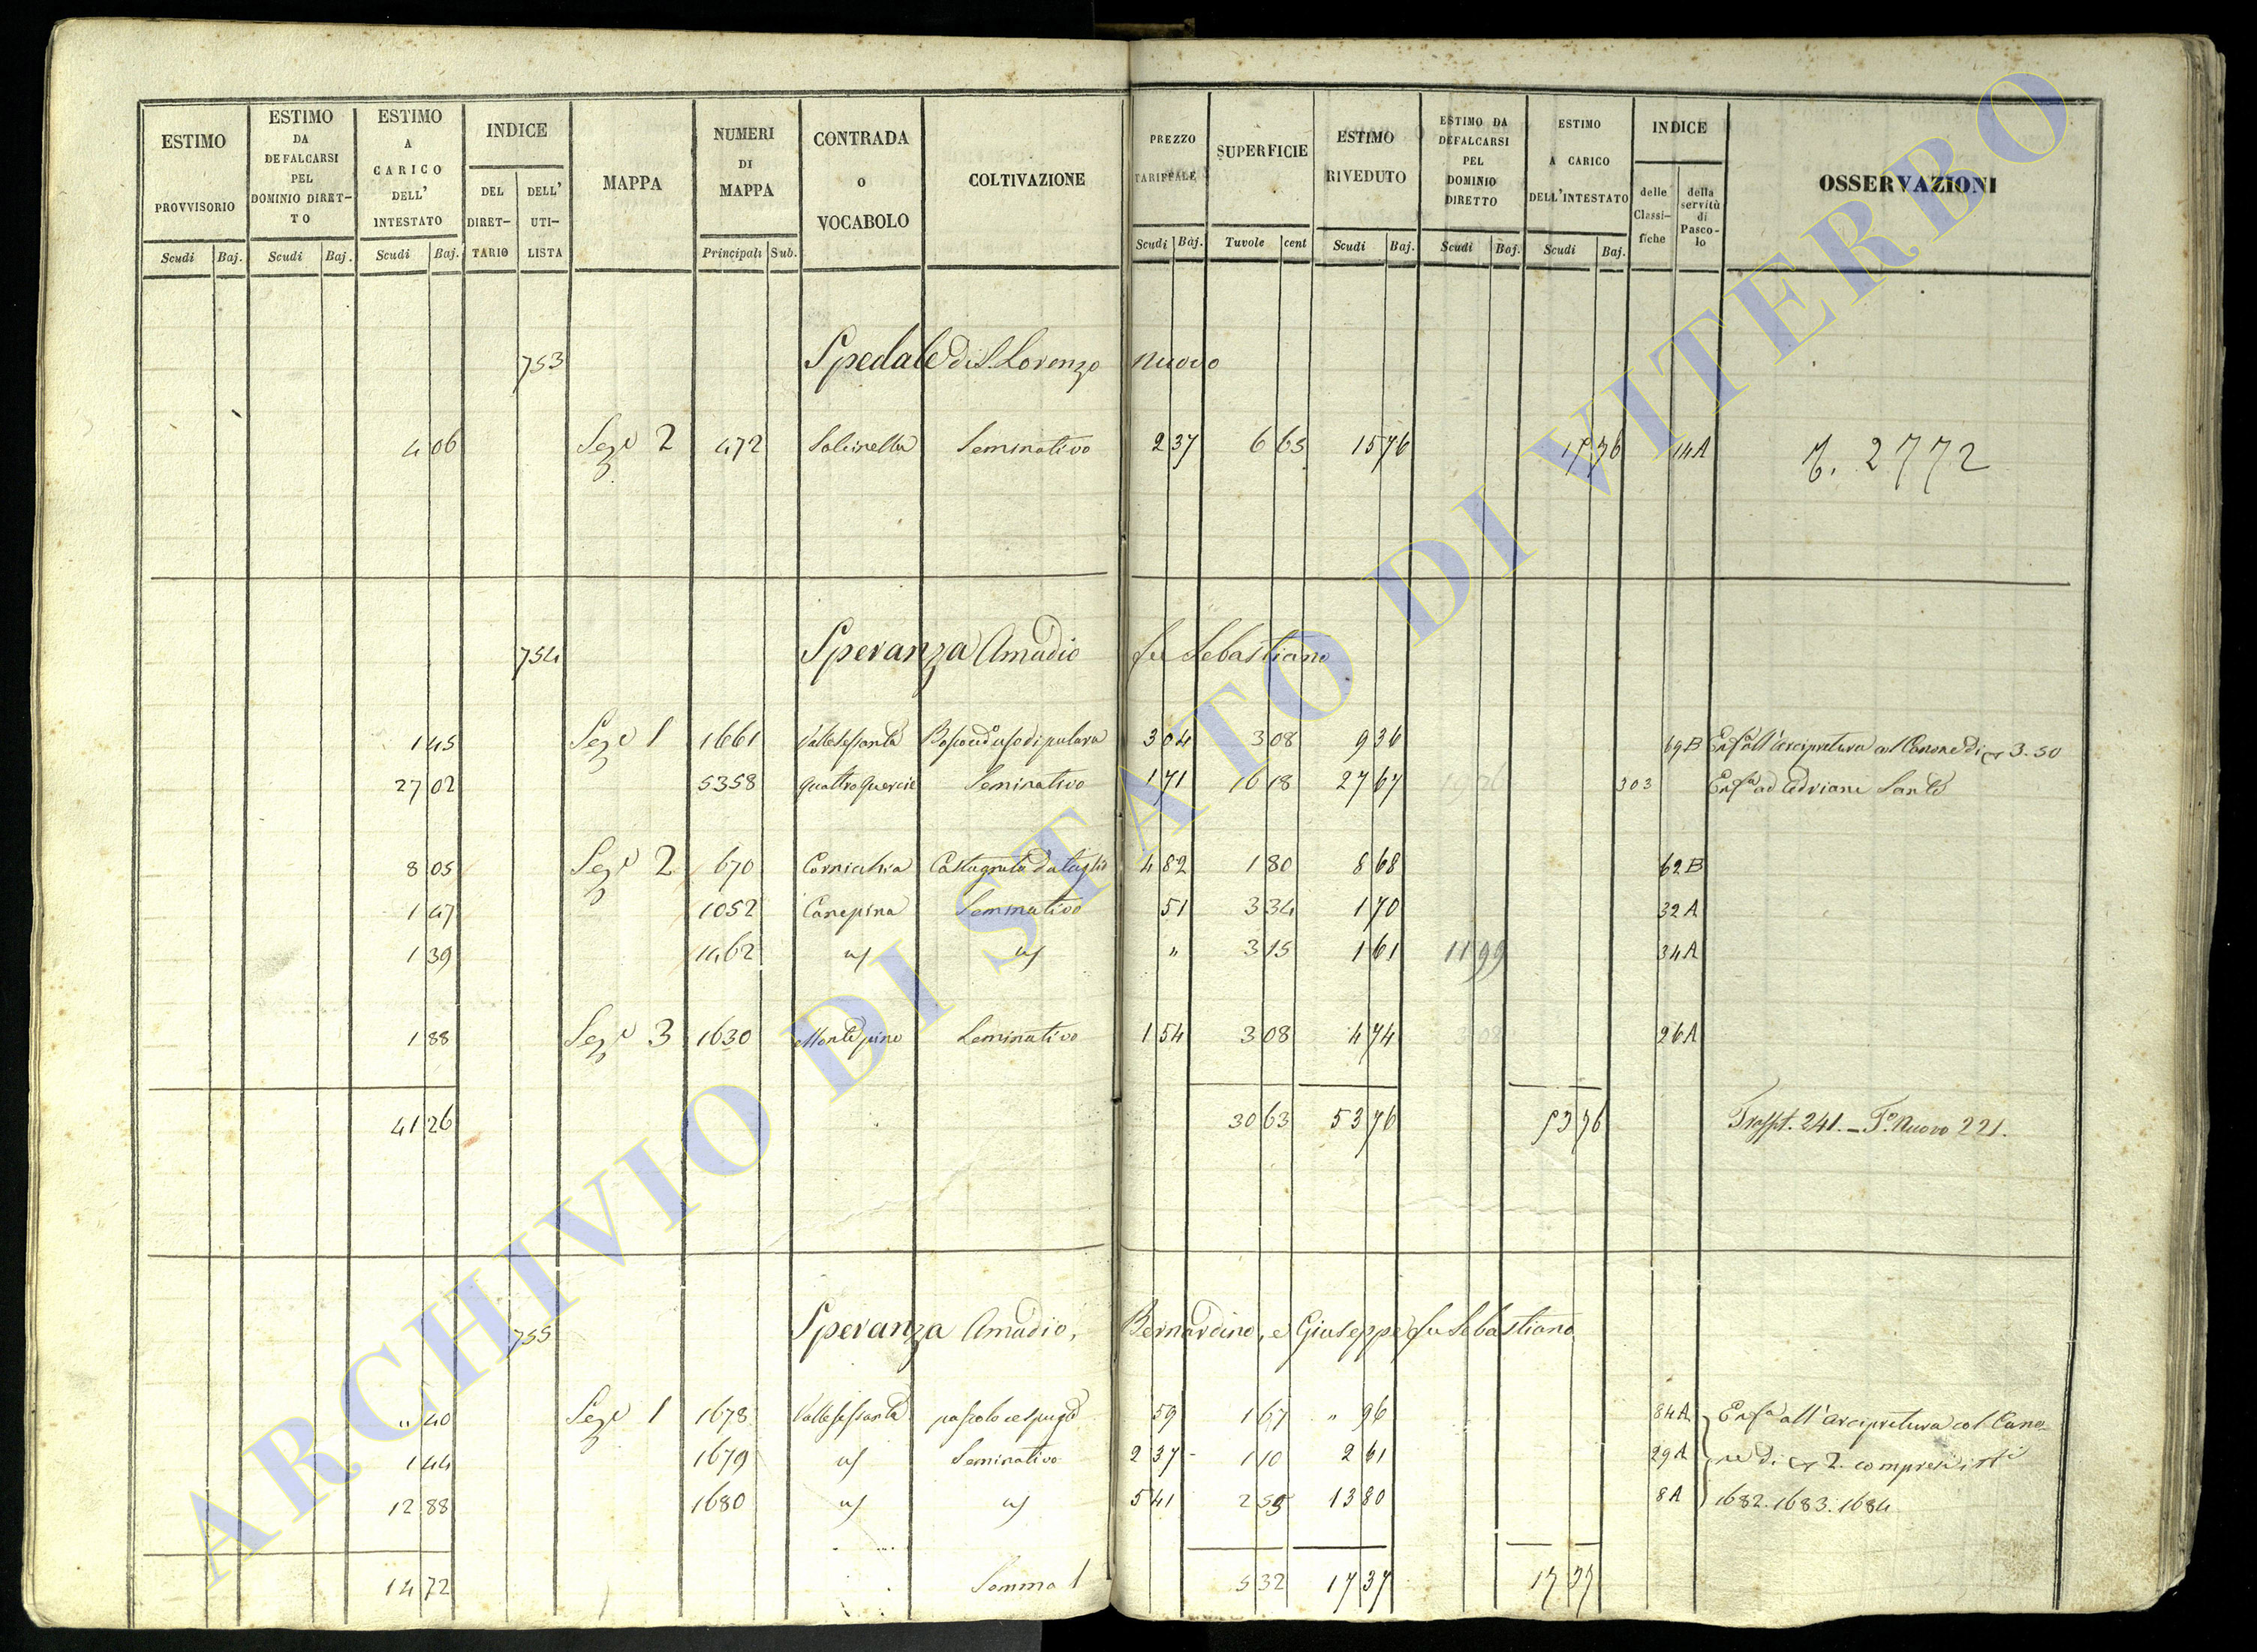 ESTIMO PROVVISORIO Scudi Baj.
ESTIMO DA DEFALCARSI PEL DOMINIO DIRETTO Scudi Baj.
ESTIMO A CARICO DELL' INTESTATO Scudi Baj.
INDICE DEL DIRETTARIO DELL' UTILISTA
MAPPA
NUMERI DI MAPPA Principali Sub.
CONTRADA O VOCABOLO
COLTIVAZIONE
PREZZO TARIFFALE Scudi Baj.
SUPERFICIE Tavole cent
ESTIMO RIVEDUTO Scudi Baj.
ESTIMO DA DEFALCARSI PEL DOMINIO DIRETTO Scudi Baj.
ESTIMO A CARICO DELL'INTESTATO Scudi Baj.
INDICE delle Classifiche della servitù di Pascolo
OSSERVAZIONI
753 Spedale di S. Lorenzo nuovo
4 06 Sez.e 2 472 Seminativo 2 37 6 65 15 76 15 76 14A 2772
754 Speranza Amadio fu Sebastiano
1 45 Sez.e 1 1661 3 04 3 08 9 36 69B Enf.a all'Arcipretura col Canone di 3.50
27 02 5358 quattro quercie Seminativo 1 71 16 18 27 67 303 Enf.a ad Adriani Sante
8 05 Sez.e 2 670 Cornicchia Castagneto da taglio 4 82 1 80 8 68 62B
1 47 1052 Canepina Seminativo 51 3 34 1 70 32A
1 39 1462 " 3 15 1 61 11 99 34A
1 88 Sez.e 3 1630 Monte pino Seminativo 1 54 3 08 4 74 26A
41 26 30 63 53 76 53 76 Traspt. 241. _ F.o Nuovo 221.
755 Speranza Amadio, Bernardino, e Giuseppe fu Sebastiano
" 40 Sez.e 1 1678 59 1 67 " 96 84A Enf.a all'Arcipretura col Cano-
1 44 1679 Seminativo 2 37 1 10 2 61 29A ne di 2. compresi i N.i
12 88 1680 5 41 2 55 13 80 8A 1682. 1683. 1684
14 72 Somma 1 5 32 17 37 17 37
ARCHIVIO DI STATO DI VITERBO